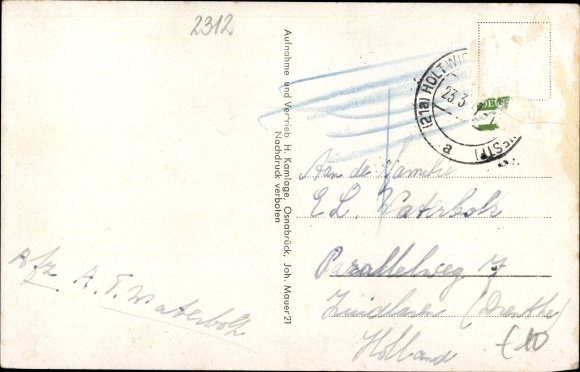 2312
Aufnahme und Vertrieb H. Kamlage, Osnabrück, Joh. Mauer 21
Nachdruck verboten
(21a) HOLTWIC
23.3
a
WESTF
Aan de Familie
E L. Waterbolk
Parallelweg 7
Zuidlaren (Drenthe)
Holland
Afz A. T. Waterbolk
£10